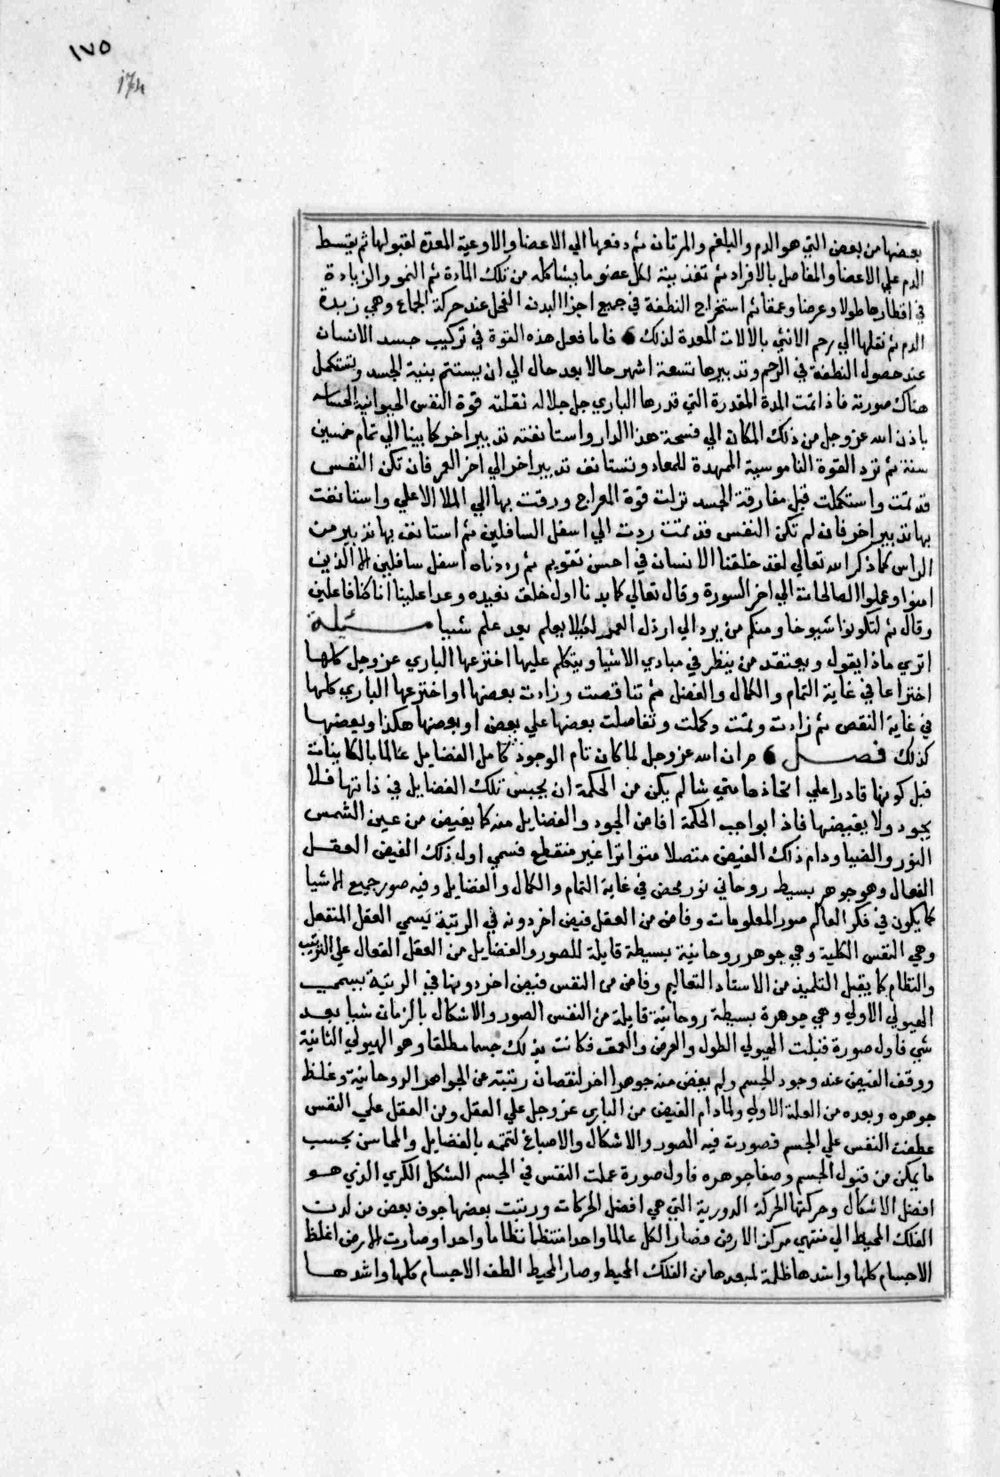 ١٧٥
174
بعضها من بعض التي هو الدم والبلغم والمرتان ثم دفعها الي الاعضا والاوعية المعدّة لقبولها ثم بقسط
الدم علي الاعضا والمفاصل بالافراد ثم تغذيية لكل عضو ما يشاكله من تلك المادة ثم النمو والزيادة
في اقطارها طولا وعرضا وعمقا ثم استخراج النطفة في جميع اجزا البدن الفحل عند حركة الجماع وهي زبدة
الدم ثم نقلها الي رحم الانثي بالالات المعدة لذلك فاما فعل هذه القوة في تركيب جسد الانسان
عند حصول النطفة في الرحم وتدبيرها تسعة اشهر حالا بعد حال الي ان يستتم بنية الجسد وتستكمل
هناك صورته فاذا تمت المدة المقدرة التي قدرها الباري جل جلاله نقلته قوة النفس الحيوانية الحساسه
باذن الله عز وجل من ذلك المكان الي فسحة هذا الدار واستانفته تدبير اخر كما بينا الي تمام خمسين
سنة ثم ترد القوة الناموسية الممهدة للمعاد وتستانف تدبير اخر الي اخر العمر فان تكن النفس
قد تمت واستكملت قبل مفارقة الجسد نزلت قوة المعراج ورقت بها الي الملا الاعلي واستانفت
بها تدبير اخر فان لم تكن النفس قد تمتت ردت الي اسفل السافلين ثم استانف بها تدبير من
الراس كما ذكر الله تعالي لقد خلقنا الانسان في احسن تقويم ثم رددناه اسفل سافلين الا الذين
امنوا وعملوا الصالحات الي اخر السورة وقال تعالي كما بدنا اول خلق نعيده وعدا علينا انا كنا فاعلين
وقال ثم لتكونوا شيوخا ومنكم من يرد الي ارذل العمر لكيلا يعلم بعد علم شيا مسئلة
اتري ماذا يقول ويعتقد من ينظر في مبادي الاشيا ويتكلم عليها اخترعها الباري عز وجل كلها
اختراعا في غاية التمام والكمال والفضل ثم تناقصت وزادت بعضها او اخترعها الباري كلها
في غاية النقص ثم زادت وتمت وكملت وتفاصلت بعضها علي بعض او بعضها هكذا وبعضها
كذلك فصل ان الله عز وجل لما كان تام الوجود كامل الفضايل عالما بالكاينات
قبل كونها قادرا علي اتخاذها متي شا لم يكن من الحكمة ان يحبس تلك الفضايل في ذاتها فلا
يجود ولا يفيضها فاذا بواجب الحكمة افاض الجود والفضايل منه كما يفيض من عين الشمس
النور والضيا ودام ذلك الفيض متصلا متواترا غير منقطع فسمي اول ذلك الفيض العقل
الفعال وهو جوهر بسيط روحاني نور محض في غاية التمام والكمال والفضايل وفيه صور جميع الاشيا
كما يكون في فكر العالم صور المعلومات وفاض من العقل فيض اخر دونه في الرتبة يسمي العقل المنفعل
وهي النفس الكلية وهي جوهر روحانية بسيطة قابلة للصور والفضايل من العقل الفعال علي الترتيب
والنظام كما يقبل التلميذ من الاستاد التعاليم وفاض من النفس فيض اخر دونها في الرتبة يسمي
الهيولي الاولي وهي جوهرة بسيطة روحانية قابلة من النفس الصور والاشكال بالزمان شيا بعد
شي فاول صورة قبلت الهيولي الطول والعرض والعمق فكانت بذلك جسما مطلقا وهو الهيولي الثانية
ووقف الفيض عند وجود الجسم ولم يفض منه جوهرا اخر لنقصان رتبته من الجواهر الروحانية وغلظ
جوهره وبعده من العلة الاولي ولما دام الفيض من الباري عز وجل علي العقل ومن العقل علي النفس
عطفت النفس علي الجسم فصورت فيه الصور والاشكال والاصباغ لتتمه بالفضايل والمحاسن بحسب
ما يمكن من قبول الجسم وصفا جوهره فاول صورة عملت النفس في الجسم الشكل الكري الذي هو
افضل الاشكال وحركتها الحركة الدورية التي هي افضل الحركات ورتبت بعضها جوف بعض من لدن
الفلك المحيط الي منتهي مركز الارض فصار الكل عالما واحدا منتظما نظاما واحدا وصارت الارض اغلظ
الاجسام كلها واشدها ظلمة لبعدها من الفلك المحيط وصار المحيط الطف الاجسام كلها واشدها